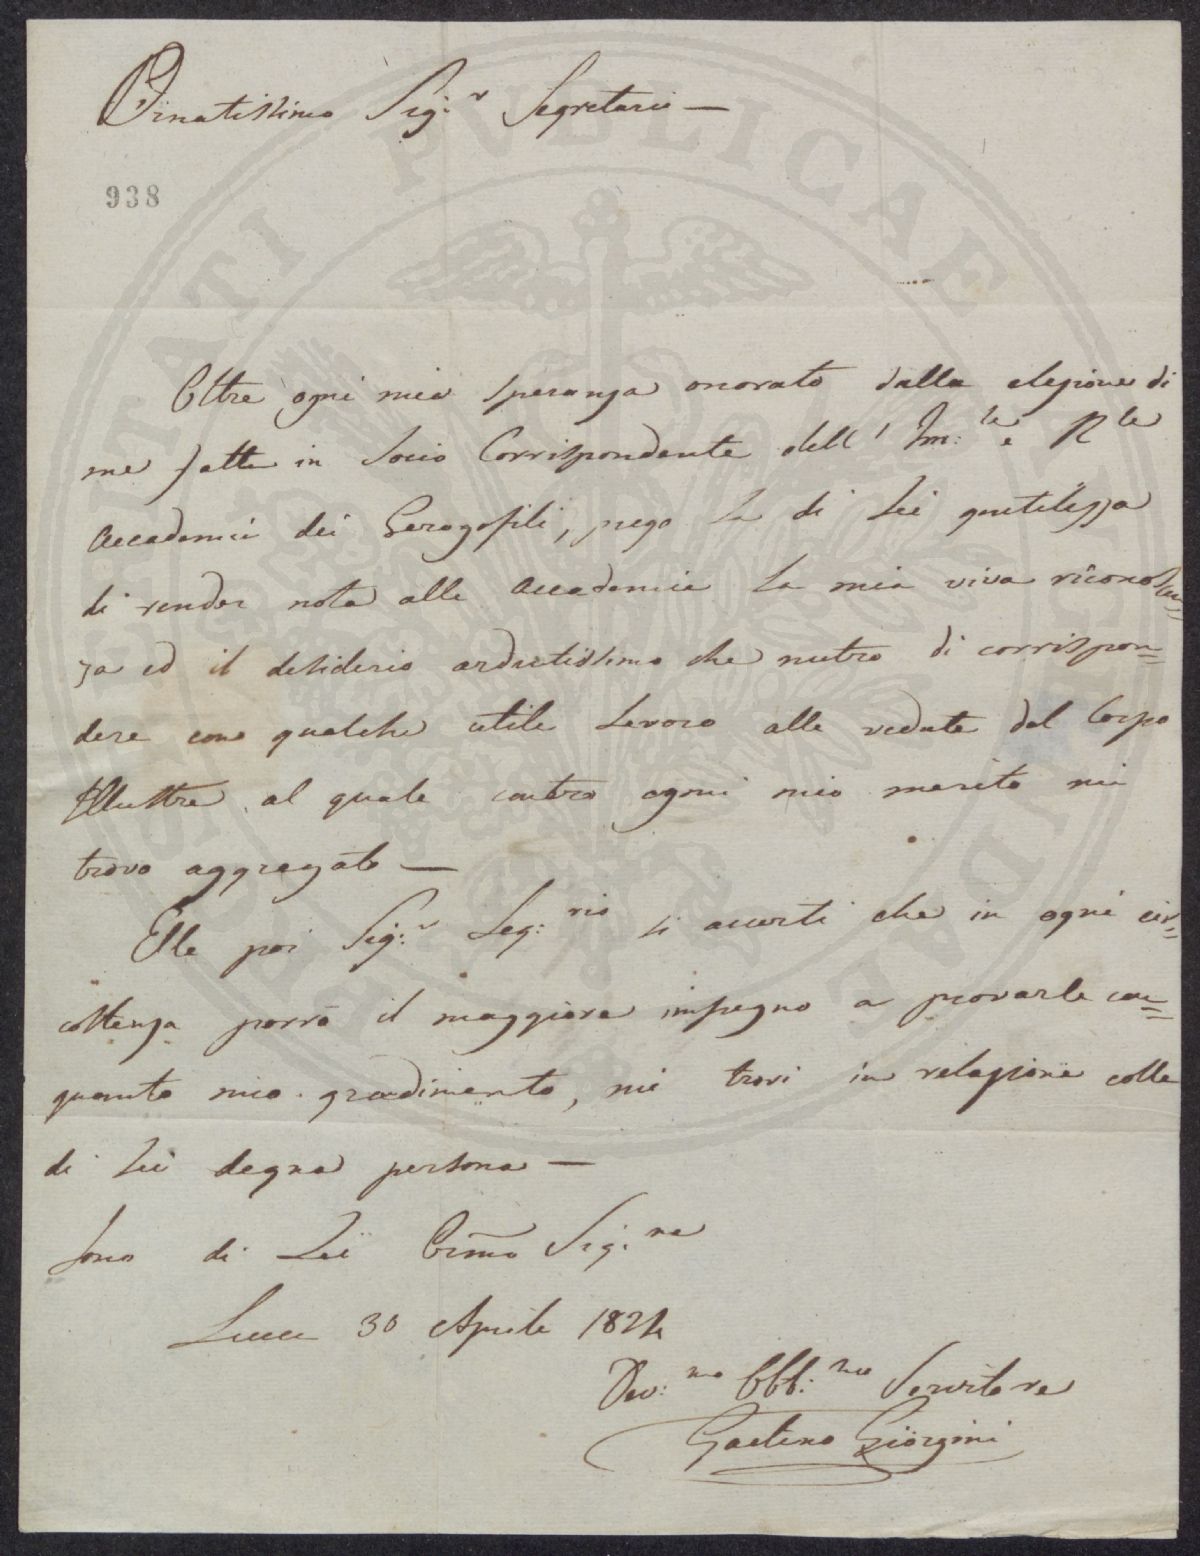 Ornatissimo Sig.r Segretario —
938
Oltre ogni mia speranza onorato dalla elezione di
me fatta in Socio Corrispondente dell' Im:le e Rle
Accademia dei Gerogofili, prego la di Lei gentilezza
di render nota alla Accademia la mia viva riconoscen=
za ed il desiderio ardentissimo che nutro di corrispon=
dere con qualche utile lavoro alle vedute del Corpo
Illustre al quale contro ogni mio merito mi
trovo aggregato —
Ella poi Sig:r Seg:rio si accerti che in ogni cir=
costanza porrò il maggiore impegno a provarle con=
quanto mio gradimento, mi trovi in relazione colla
di Lei degna persona —
Sono di Lei Ornmo Sig:re
Lucca 30 Aprile 1824
Dev:mo Obb:mo Servitore
Gaetano Giorgini
PUBLICAE